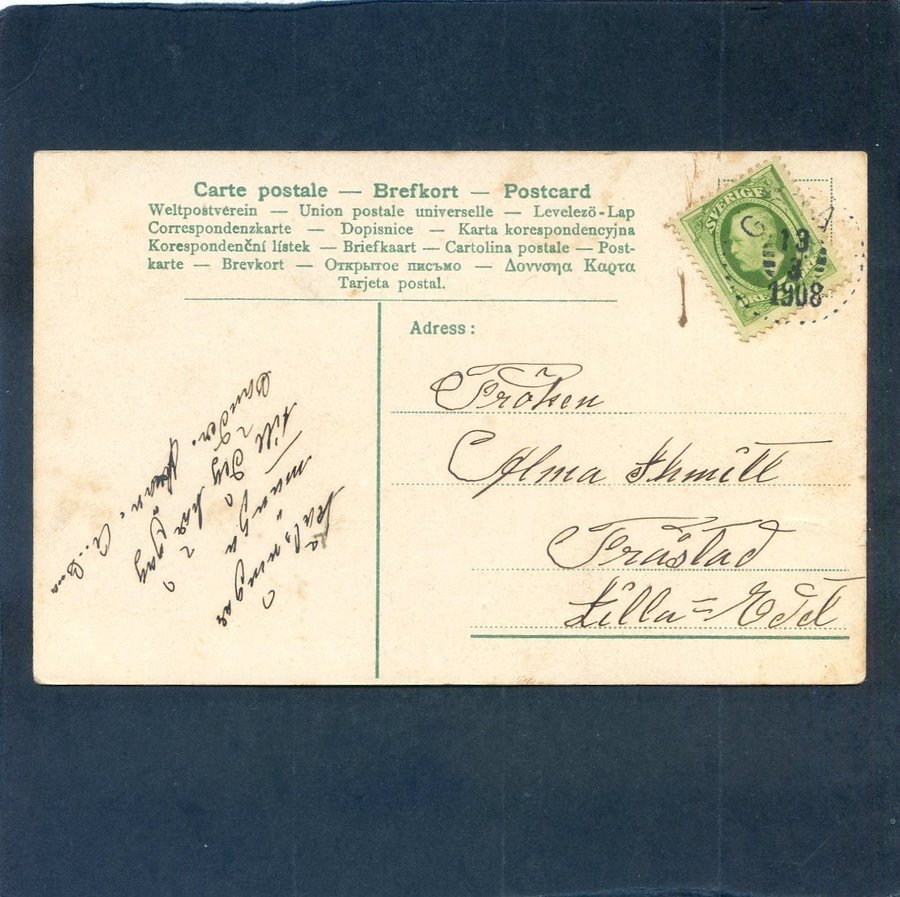 Carte postale — Brefkort — Postcard
Weltpostverein — Union postale universelle — Levelező-Lap
Correspondenzkarte — Dopisnice — Karta korespondencyjna
Korespondenční lístek — Briefkaart — Cartolina postale — Post-
karte — Brevkort — Открытое письмо — Δοννσηα Καρτα
Tarjeta postal.
SVERIGE
13
1908
Adress:
Fröken
Alma Schmitt
Fråstad
Lilla=Edet
Hälsningar
många
till Dig